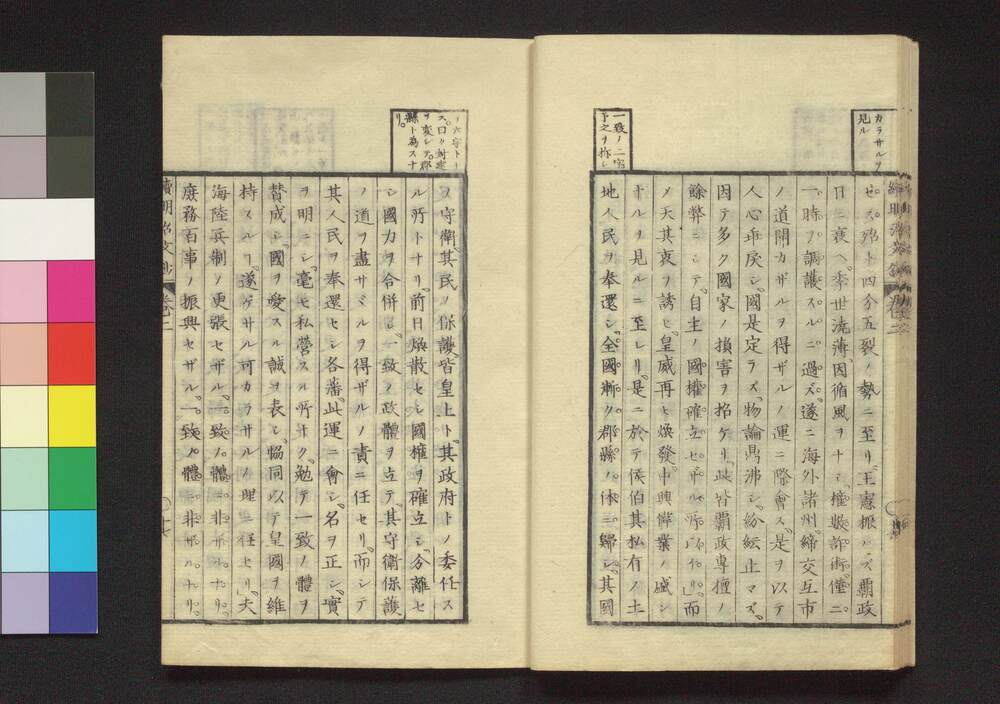 カラサルヲ
見ル
セス殆ト四分五裂ノ勢ニ至リ王憲振ハス覇政
日ニ衰ヘ季世澆薄因循風ヲナシ權數詐術僅ニ
一時ヲ調護スルニ過ズ遂ニ海外諸州締交互市
ノ道開カザルヲ得ザルノ運ニ際會ス是ヲ以テ
人心乖戻シ國是定ラズ物論鼎沸シ紛紜止マズ
因テ多ク國家ノ損害ヲ招ケリ此皆覇政專擅ノ
餘弊ニシテ自主ノ國權確立セザル所以ナリ而
メ天其衷ヲ誘ヒ皇威再ヒ煥發中興偉業ノ盛シ
ナルヲ見ルニ至レリ是ニ於テ侯伯其私有ノ土
地人民ヲ奉還シ全國漸ク郡縣ノ体ニ歸シ其國
一致ノ二字
予之ヲ称シ
ノ大守ト
ス曰ク封建
ヲ変シテ郡
縣ト為スナ
リ
ヲ守衛其民ヲ保護皆皇上ト其政府トノ委任ス
ル所トナリ前日煥散セシ國權ヲ確立シ分離セ
シ國力ヲ合併シ一致ノ政體ヲ立テ其守衛保護
ノ道ヲ盡サミルヲ得ザルノ責ニ任セリ而シテ
其人民ヲ奉還セシ各藩此運ニ會シ名ヲ正シ實
ヲ明ニシ毫モ私營スル所ナク勉テ一致ノ體ヲ
賛成シ國ヲ愛スル誠ヲ表シ協同以テ皇國ヲ維
持スルヿ遂ゲサル可カラサルノ理ニ任セリ夫
海陸兵制ノ更張セザル一致ノ體ニ非ザルナリ
庶務百事ノ振興セザル一致ノ體ニ非ザルナリ
續明治文鈔 卷二 十七